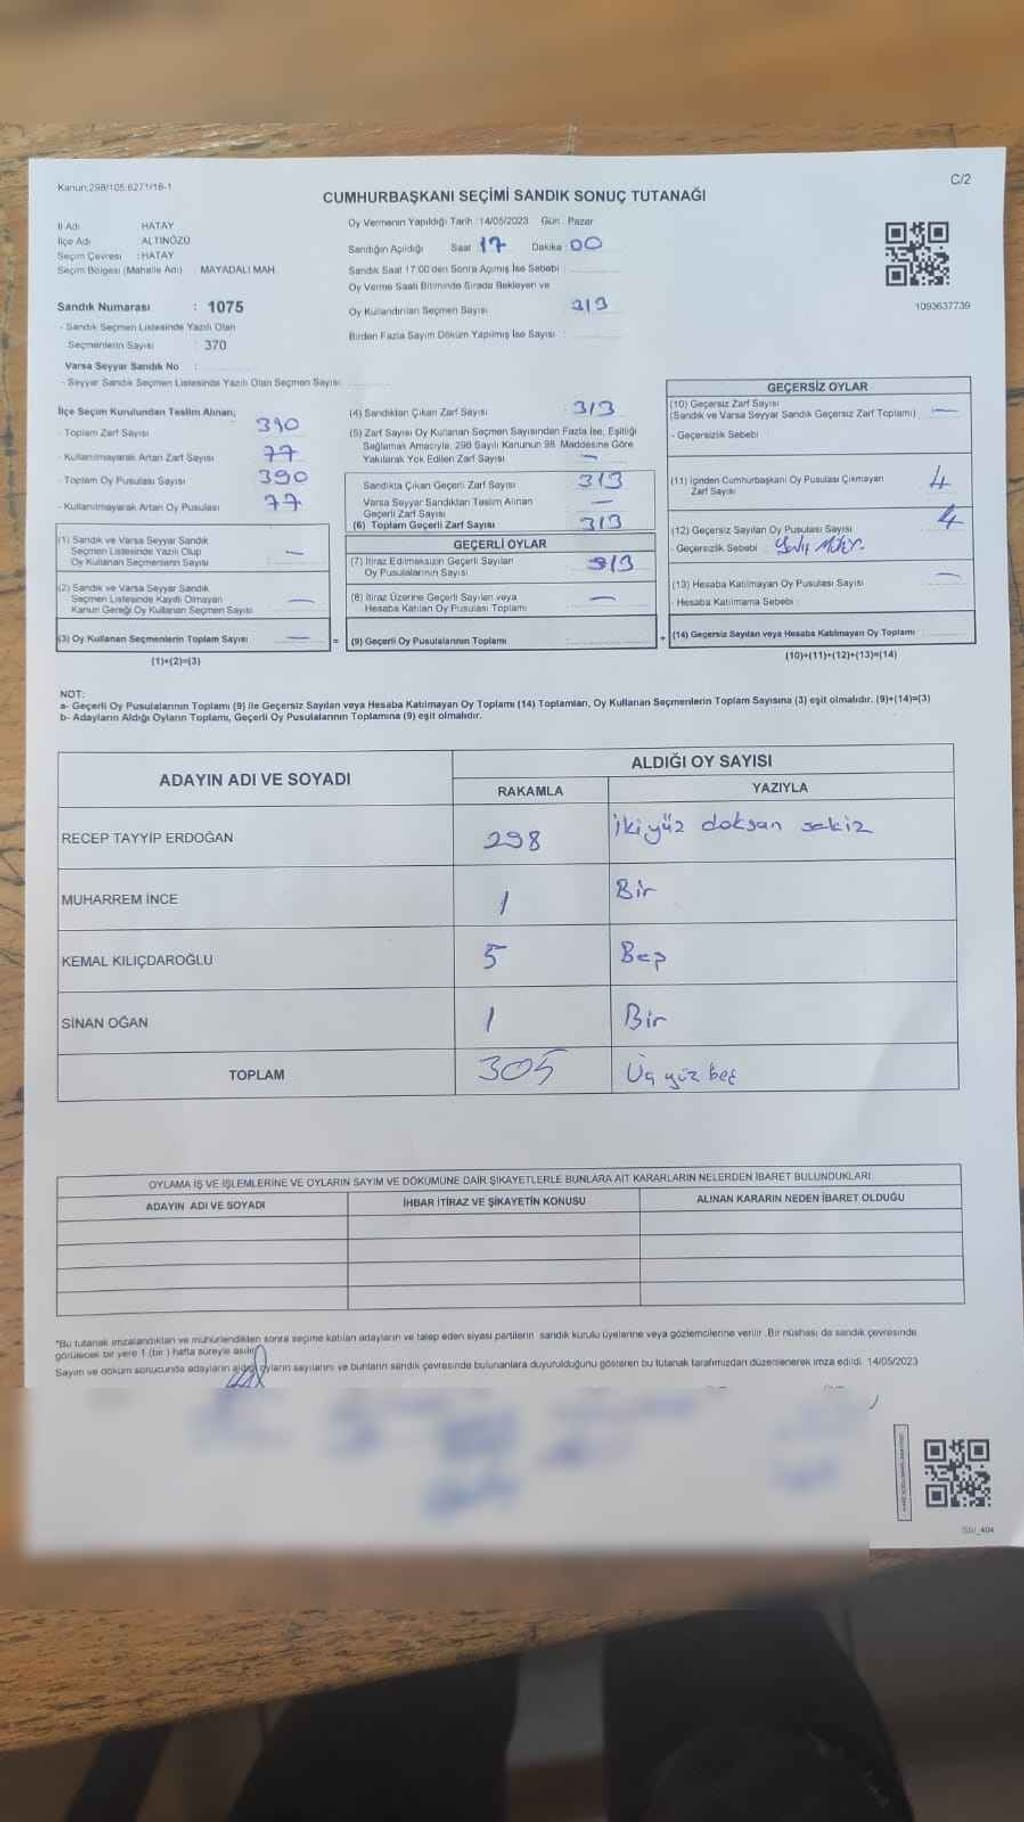 Kanun:298/105.6271/16-1
C/2
CUMHURBAŞKANI SEÇİMİ SANDIK SONUÇ TUTANAĞI
İl Adı HATAY
İlçe Adı ALTINÖZÜ
Seçim Çevresi :HATAY
Seçim Bölgesi (Mahalle Adı) MAYADALI MAH.
Sandık Numarası : 1075
- Sandık Seçmen Listesinde Yazılı Olan
Seçmenlerin Sayısı 370
Varsa Seyyar Sandık No :
- Seyyar Sandık Seçmen Listesinde Yazılı Olan Seçmen Sayısı
Oy Vermenin Yapıldığı Tarih :14/05/2023 Gün: Pazar
Sandığın Açıldığı Saat 17 Dakika 00
Sandık Saat 17:00'den Sonra Açılmış İse Sebebi
Oy Verme Saati Bitiminde Sırada Bekleyen ve
Oy Kullandırılan Seçmen Sayısı 313
Birden Fazla Sayım Döküm Yapılmış İse Sayısı :
1093637739
İlçe Seçim Kurulundan Teslim Alınan;
- Toplam Zarf Sayısı 390
- Kullanılmayarak Artan Zarf Sayısı 77
- Toplam Oy Pusulası Sayısı 390
- Kullanılmayarak Artan Oy Pusulası 77
(1) Sandık ve Varsa Seyyar Sandık
Seçmen Listesinde Yazılı Olup
Oy Kullanan Seçmenlerin Sayısı —
(2) Sandık ve Varsa Seyyar Sandık
Seçmen Listesinde Kayıtlı Olmayan
Kanun Gereği Oy Kullanan Seçmen Sayısı —
(3) Oy Kullanan Seçmenlerin Toplam Sayısı —
(1)+(2)=(3)
=
(4) Sandıktan Çıkan Zarf Sayısı 313
(5) Zarf Sayısı Oy Kullanan Seçmen Sayısından Fazla İse, Eşitliği
Sağlamak Amacıyla, 298 Sayılı Kanunun 98. Maddesine Göre
Yakılarak Yok Edilen Zarf Sayısı —
Sandıkta Çıkan Geçerli Zarf Sayısı 313
Varsa Seyyar Sandıktan Teslim Alınan
Geçerli Zarf Sayısı —
(6) Toplam Geçerli Zarf Sayısı 313
GEÇERLİ OYLAR
(7) İtiraz Edilmeksizin Geçerli Sayılan
Oy Pusulalarının Sayısı 313
(8) İtiraz Üzerine Geçerli Sayılan veya
Hesaba Katılan Oy Pusulası Toplamı —
(9) Geçerli Oy Pusulalarının Toplamı
+
GEÇERSİZ OYLAR
(10) Geçersiz Zarf Sayısı
(Sandık ve Varsa Seyyar Sandık Geçersiz Zarf Toplamı) —
- Geçersizlik Sebebi
(11) İçinden Cumhurbaşkanı Oy Pusulası Çıkmayan
Zarf Sayısı 4
(12) Geçersiz Sayılan Oy Pusulası Sayısı 4
- Geçersizlik Sebebi
(13) Hesaba Katılmayan Oy Pusulası Sayısı —
- Hesaba Katılmama Sebebi
(14) Geçersiz Sayılan veya Hesaba Katılmayan Oy Toplamı
(10)+(11)+(12)+(13)=(14)
NOT:
a- Geçerli Oy Pusulalarının Toplamı (9) ile Geçersiz Sayılan veya Hesaba Katılmayan Oy Toplamı (14) Toplamları, Oy Kullanan Seçmenlerin Toplam Sayısına (3) eşit olmalıdır. (9)+(14)=(3)
b- Adayların Aldığı Oyların Toplamı, Geçerli Oy Pusulalarının Toplamına (9) eşit olmalıdır.
ADAYIN ADI VE SOYADI
ALDIĞI OY SAYISI
RAKAMLA YAZIYLA
RECEP TAYYİP ERDOĞAN 298 İkiyüz doksan sekiz
MUHARREM İNCE 1 Bir
KEMAL KILIÇDAROĞLU 5 Beş
SİNAN OĞAN 1 Bir
TOPLAM 305 Üç yüz beş
OYLAMA İŞ VE İŞLEMLERİNE VE OYLARIN SAYIM VE DÖKÜMÜNE DAİR ŞİKAYETLERLE BUNLARA AİT KARARLARIN NELERDEN İBARET BULUNDUKLARI
ADAYIN ADI VE SOYADI İHBAR İTİRAZ VE ŞİKAYETİN KONUSU ALINAN KARARIN NEDEN İBARET OLDUĞU
*Bu tutanak imzalandıktan ve mühürlendikten sonra seçime katılan adayların ve talep eden siyasi partilerin sandık kurulu üyelerine veya gözlemcilerine verilir. Bir nüshası da sandık çevresinde
görülecek bir yere 1 (bir ) hafta süreyle asılır.
Sayım ve döküm sonucunda adayların aldığı oyların sayılarını ve bunların sandık çevresinde bulunanlara duyurulduğunu gösteren bu tutanak tarafımızdan düzenlenerek imza edildi. 14/05/2023